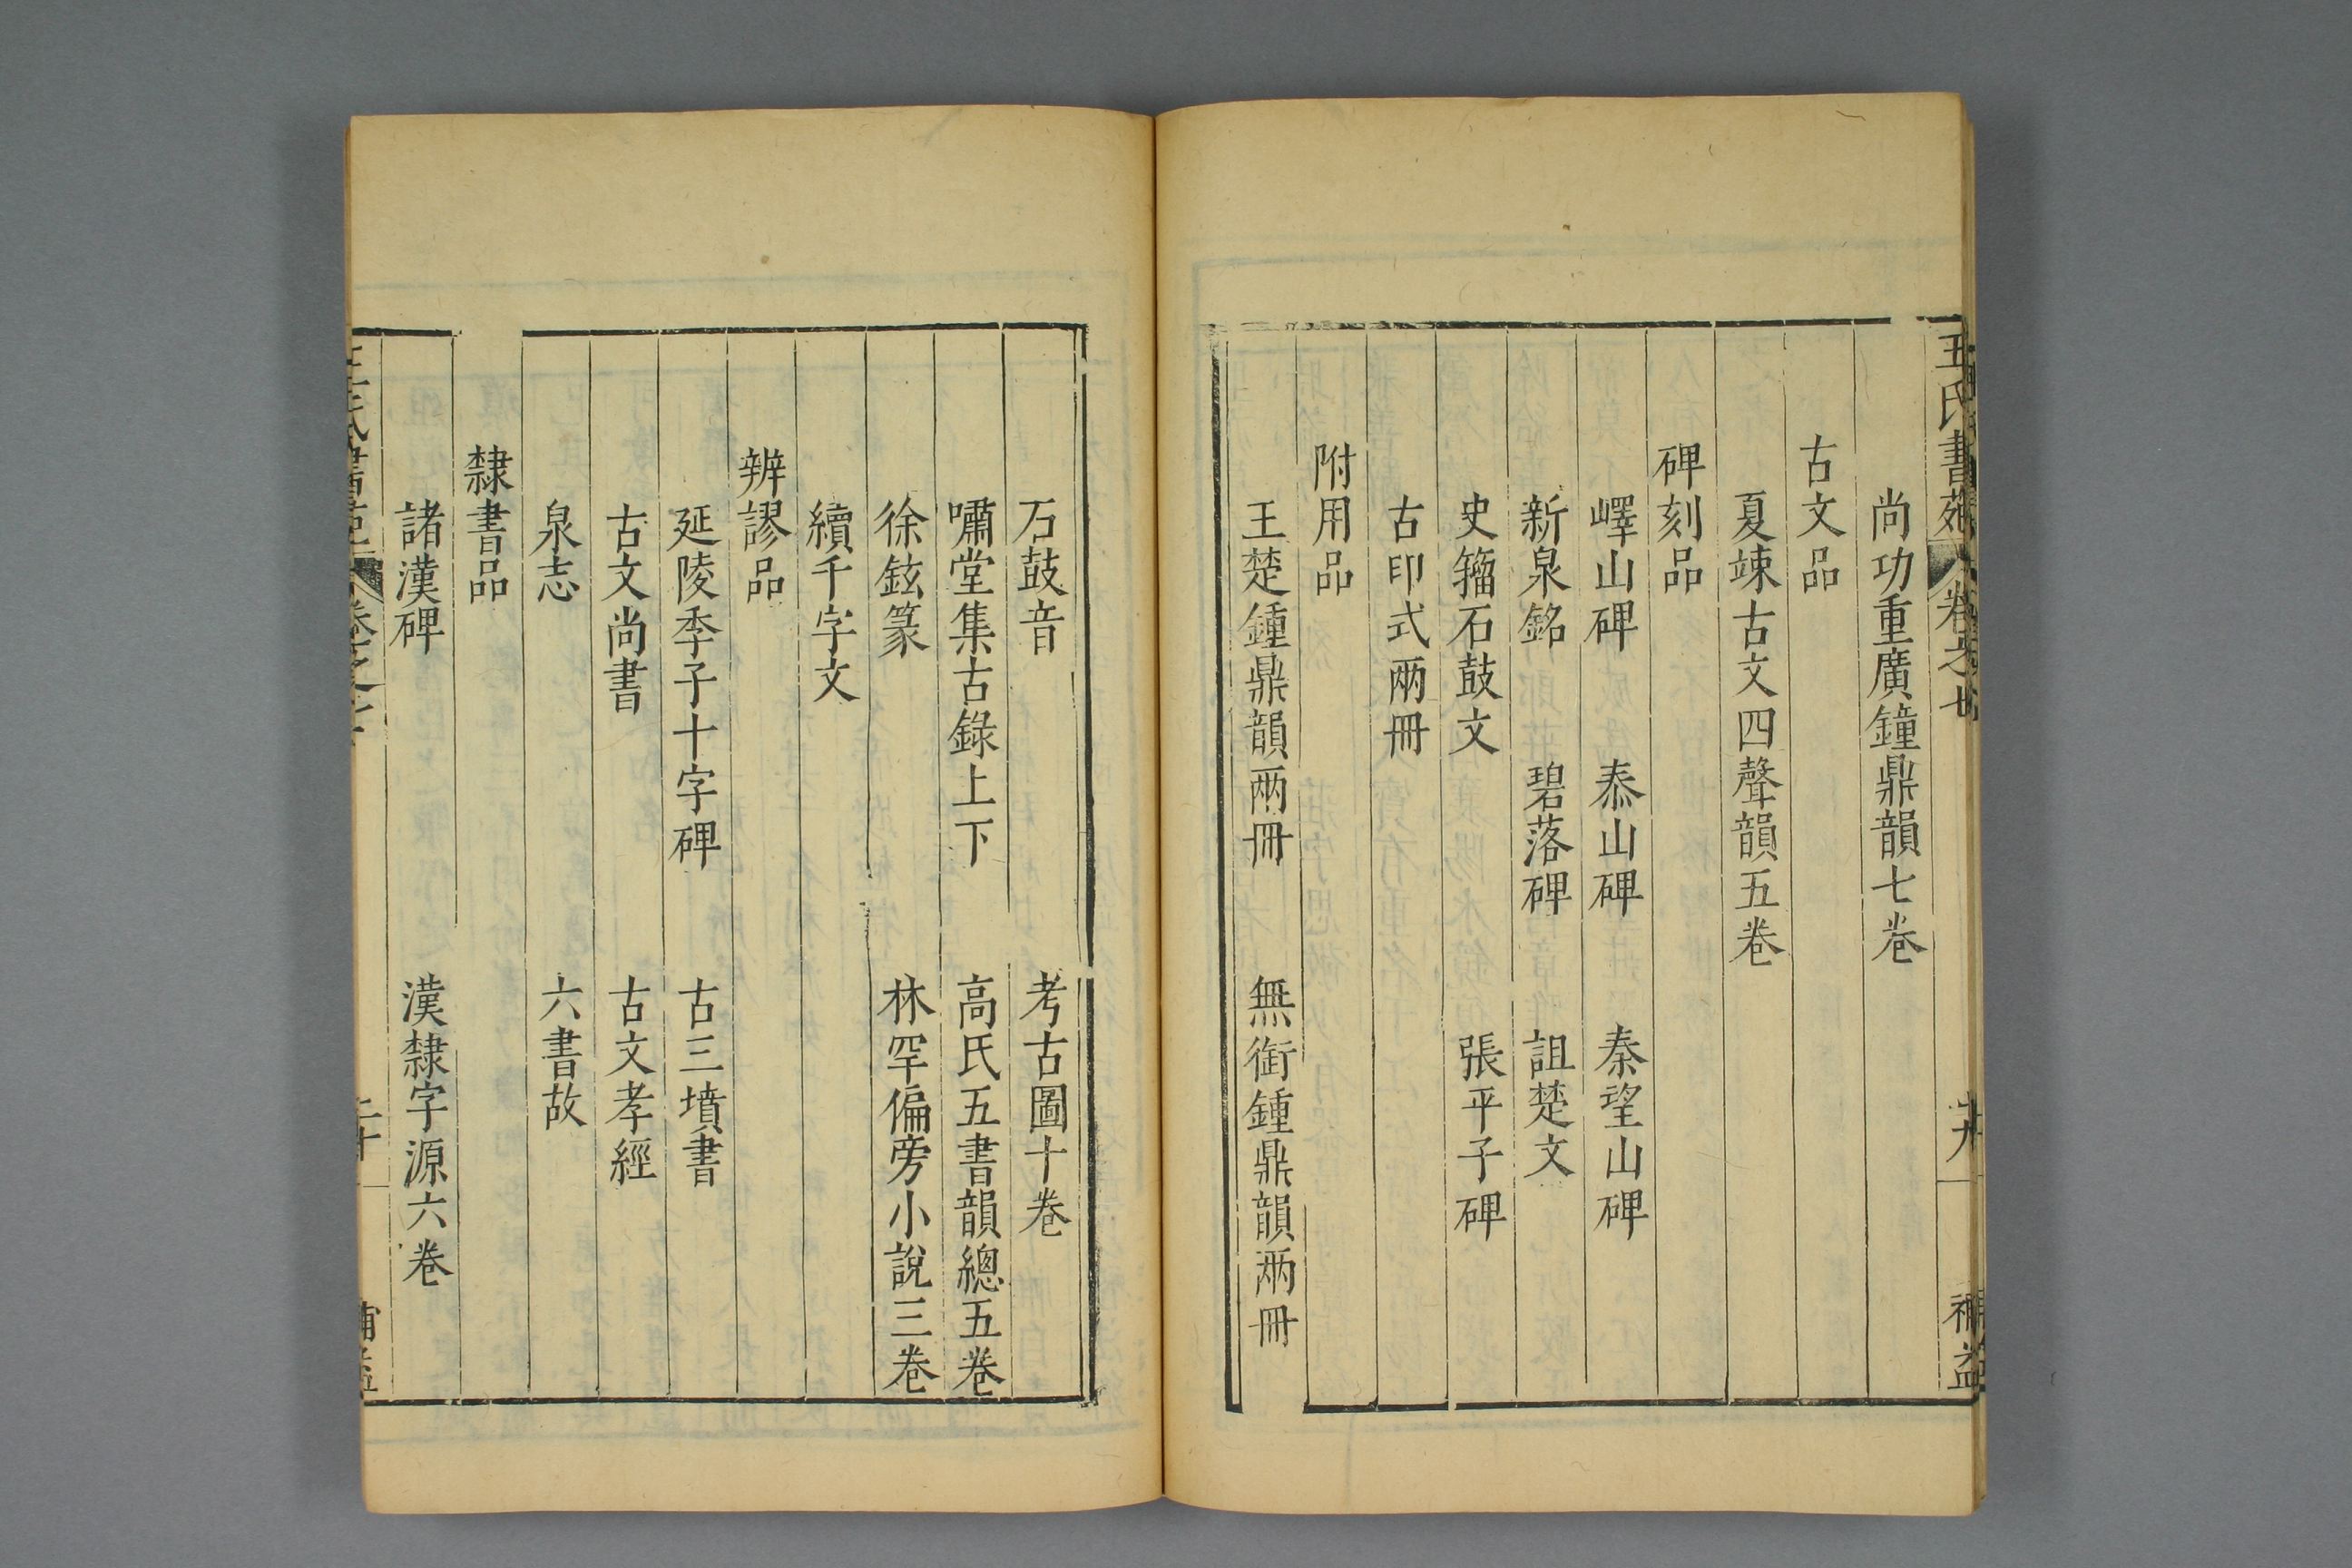 王氏書苑 卷之七 十九 補益
尚功重廣鐘鼎韻七卷
古文品
夏竦古文四聲韻五卷
碑刻品
嶧山碑 泰山碑 秦望山碑
新泉銘 碧落碑 詛楚文
史籀石鼓文 張平子碑
古印式兩冊
附用品
王楚鍾鼎韻兩冊 無銜鍾鼎韻兩冊
石鼓音 考古圖十卷
嘯堂集古錄上下 高氏五書韻總五卷
徐鉉篆 林罕偏旁小說三卷
續千字文
辨謬品
延陵季子十字碑 古三墳書
古文尚書 古文孝經
泉志 六書故
隸書品
諸漢碑 漢隸字源六卷
王氏書苑 卷之七 二十 補益